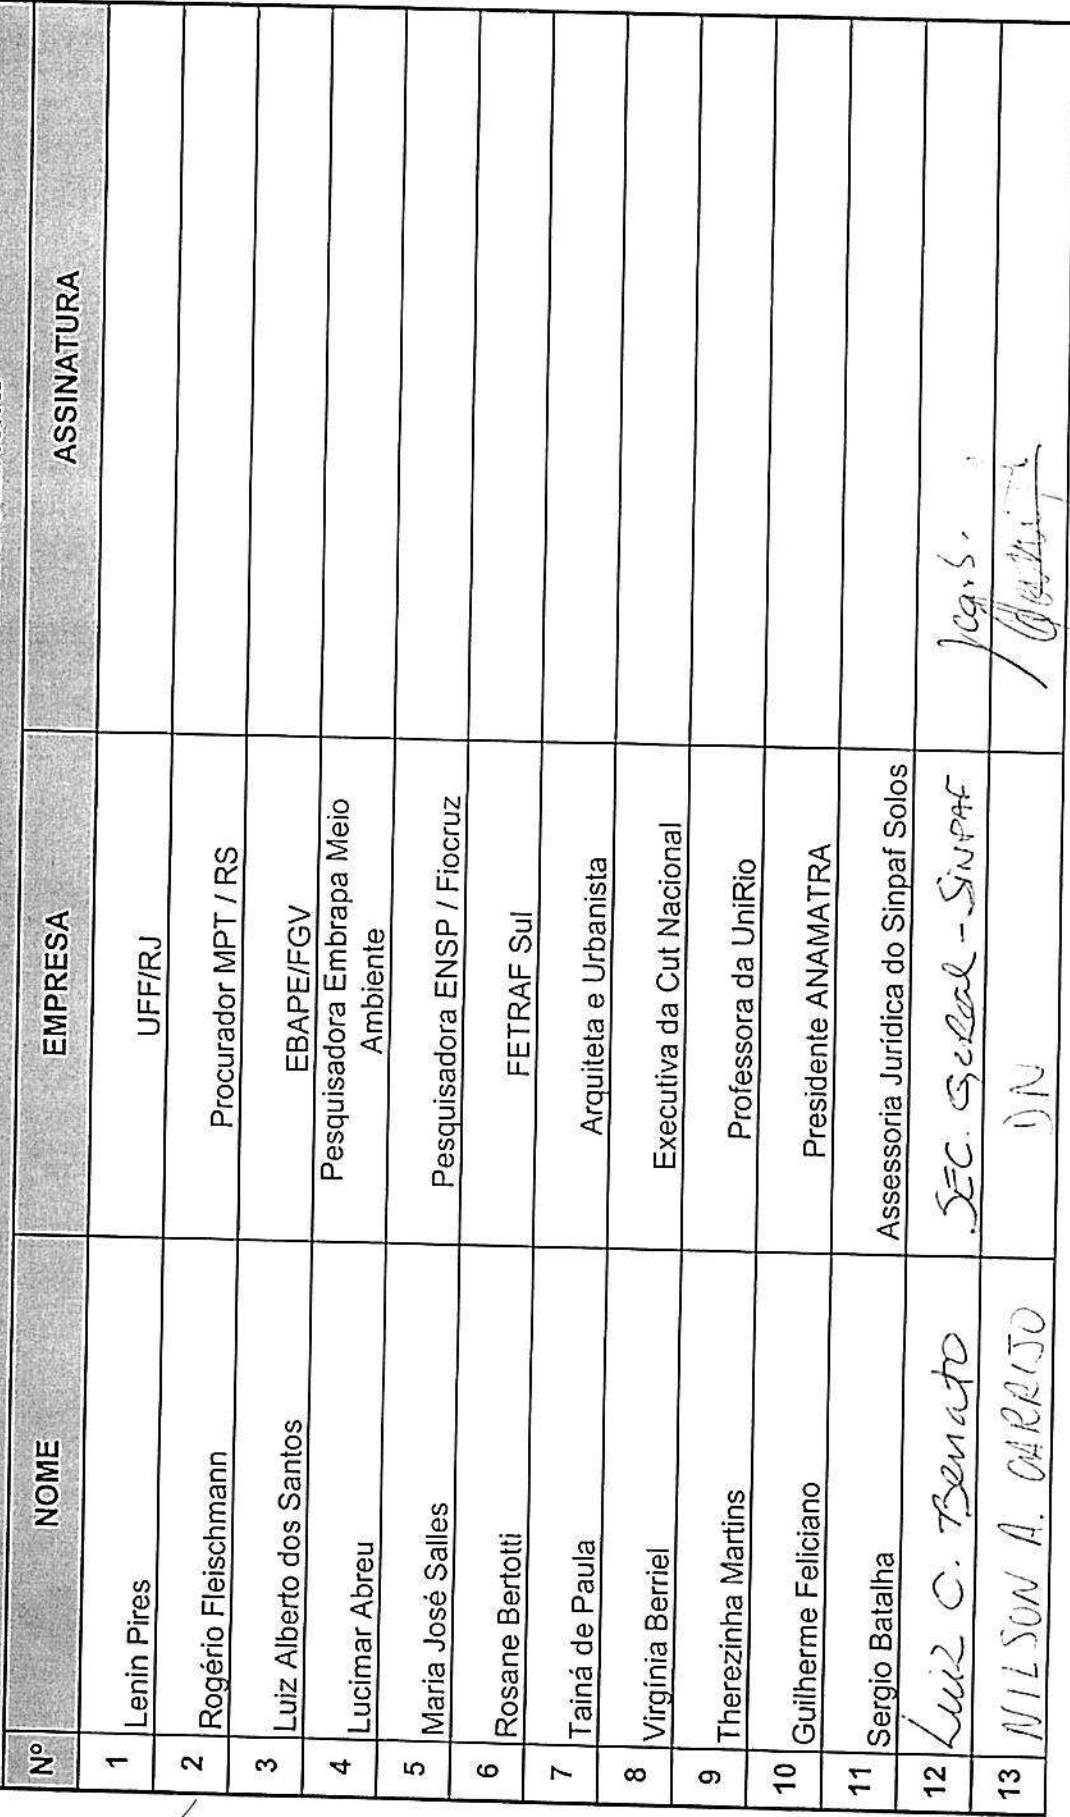 Nº NOME EMPRESA ASSINATURA
1 Lenin Pires UFF/RJ
2 Rogério Fleischmann Procurador MPT / RS
3 Luiz Alberto dos Santos EBAPE/FGV
4 Lucimar Abreu Pesquisadora Embrapa Meio
Ambiente
5 Maria José Salles Pesquisadora ENSP / Fiocruz
6 Rosane Bertotti FETRAF Sul
7 Tainá de Paula Arquiteta e Urbanista
8 Virgínia Berriel Executiva da Cut Nacional
9 Therezinha Martins Professora da UniRio
10 Guilherme Feliciano Presidente ANAMATRA
11 Sergio Batalha Assessoria Jurídica do Sinpaf Solos
12 Luiz C. Benato SEC. Geral - SINPAF
13 NILSON A. CARRIJO DN